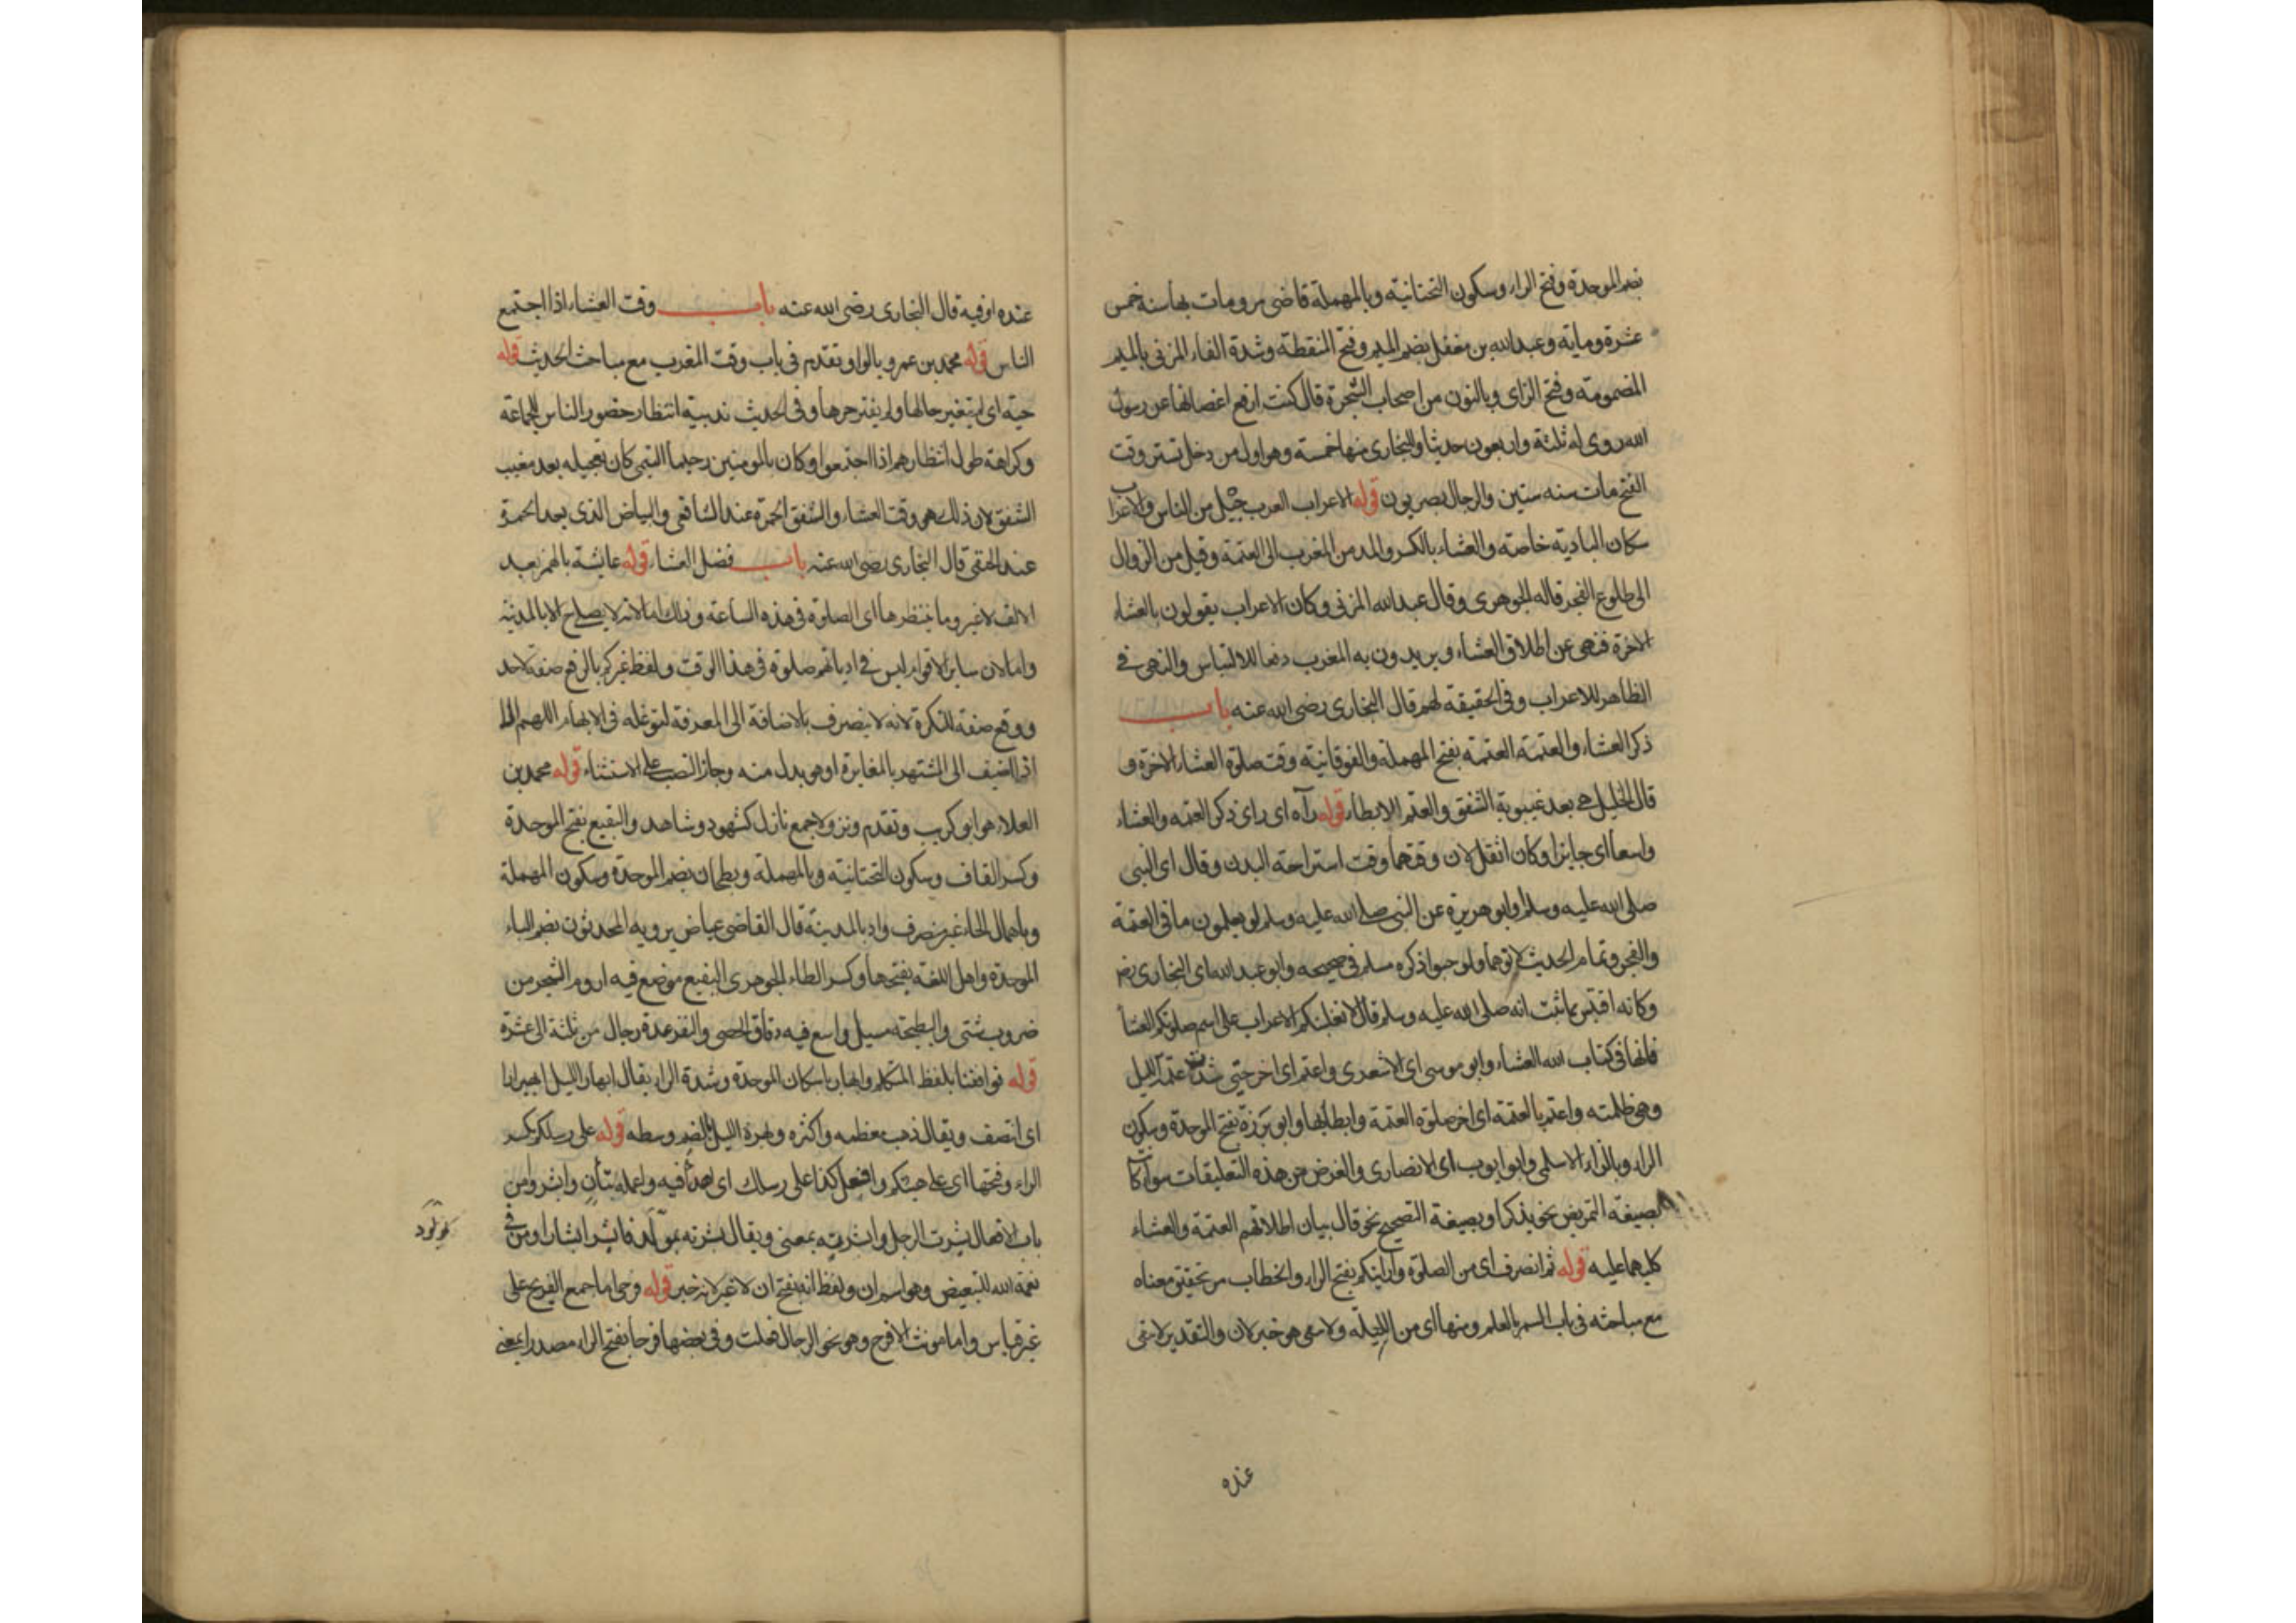 بضم الموحدة وفتح الراء وسكون التحتانية وبالمهملة قاضى مرو مات بها سنة خمس
عشرة وماية وعبدالله بن مغفل بضم الميم وفتح المنقطة وشدة الفاء المزنى بالميم
المضمومة وفتح الزاى وبالنون من اصحاب الشجرة قال كنت ارفع اغصانها عن رسول
الله روى له ثلثة واربعون حديثا والبخارى منها خمسة وهو اول من دخل تستر وقت
الفتح مات سنه ستين والرجال بصريون قوله الاعراب العرب جيل من الناس والاعراب
سكان البادية خاصة والعشاء بالكسر والمد من المغرب الى العتمة وقيل من الزوال
الى طلوع الفجر قاله الجوهرى وقال عبدالله المزنى وكان الاعراب يقولون بالعشاء
الاخرة فنهى عن اطلاق العشاء ويريدون به المغرب دفعا للالتباس والنهى فى
الظاهر للاعراب وفى الحقيقة لهم قال البخارى رضى الله عنه باب
ذكر العشاء والعتمة العتمة بفتح المهملة والفوقانية وقت صلوة العشاء الاخرة و
قال الخليل هى بعد غيبوبة الشفق والعتم الابطاء قوله رآه اى راى ذكر العتمه والعشاء
واسعا اى جايزا وكان اثقل لان وقتهما وقت استراحة البدن وقال اى النبى
صلى الله عليه وسلم وابو هريرة عن النبى صلى الله عليه وسلم لو يعلمون ما فى العتمة
والفجر وتمام الحديث لاتوهما ولو حبوا ذكره مسلم فى صحيحه وابو عبدالله اى البخارى رضى
وكانه اقتبس مما ثبت انه صلى الله عليه وسلم قال لا تغلبنكم الاعراب على اسم صلوتكم العشا
فانها فى كتاب الله العشاء وابو موسى اى الاشعرى واعتم اى اخر حتى شدت عتمة الليل
وهى ظلمته واعتم بالعتمة اى اخر صلوة العتمة وابطأ بها وابو برزة بفتح الموحدة وسكون
الراء وبالزاء الاسلمى وابو ايوب اى الانصارى والغرض من هذه التعليقات سواء كان
بصيغة التمريض نحو يذكر او بصيغة التصحيح نحو قال بيان اطلاقهم العتمة والعشاء
كليهما عليه قوله ثم انصرف اى من الصلوة وارايتكم بفتح الراء والخطاب مر تحقيق معناه
مع مباحثه فى باب السمر بالعلم ومنها اى من الليلة ولا يبقى هو خبر لان والتقدير لا يبقى
عنده
عنده او فيه قال البخارى رضى الله عنه باب وقت العشاء اذا اجتمع
الناس قوله محمد بن عمرو بالواو تقدم فى باب وقت المغرب مع مباحث الحديث قوله
حية اى لم يتغير حالها ولم يفتر حرها وفى الحديث ندبية انتظار حضور الناس للجماعة
وكراهة طول انتظارهم اذا اجتمعوا وكان بالمومنين رحيما التيمى كان تعجيله بعد مغيب
الشفق لان ذلك هو وقت العشاء والشفق الحمرة عند الشافعى والبياض الذى بعد الحمرة
عند الحنفى قال البخارى رضى الله عنه باب فضل العشاء قوله عايشة بالهمز بعد
الالف لا غير وما ينتظرها اى الصلوة فى هذه الساعة وذلك اما لانه لا يصلح الا بالمدينة
واما لان ساير الاقوام ليس فى اديانهم صلوة فى هذا الوقت ولفظ غيركم بالرفع صفة لاحد
ووقع صفة للنكرة لانه لا يتصرف بالاضافة الى المعرفة لتوغله فى الابهام اللهم الا
اذا اضيف الى المشتهر بالمغايرة او هو بدل منه وجاز النصب على الاستثناء قوله محمد بن
العلاء هو ابو كريب وتقدم ونزولا جمع نازل كشهود وشاهد والبقيع بفتح الموحدة
وكسر القاف وسكون التحتانية وبالمهملة وبطحان بضم الموحدة وسكون المهملة
وباهمال الحاء غير منصرف واد بالمدينة قال القاضى عياض يرويه المحدثون بضم الباء
الموحدة واهل اللغة بفتحها وكسر الطاء الجوهرى البقيع موضع فيه اروم الشجر من
ضروب شتى والبطيحة مسيل واسع فيه دقاق الحصى والنفر عدة رجال من ثلثة الى عشرة
قوله فوافقنا بلفظ المتكلم وابهار باسكان الموحدة وشدة الراء يقال ابهار الليل ابهيرارا
اى انتصف ويقال ذهب معظمه واكثره وبهرة الليل بالضم وسطه قوله على رسلكم بكسر
الراء وفتحها اى على هيئتكم وافعل كذا على رسلك اى اهدأ فيه واعمله بتأن وابشروا من
باب الافعال بشرت الرجل وابشرته بمعنى ويقال بشرته بمولود فابشر ابشارا ومن فى
نعمة الله للتبعيض وهو اسم ان ولفظ انه بفتح ان لا غير لانه خبر قوله فرحى اما جمع الفريح على
غير قياس واما مونث الافرح وهو نحو الرجال فعلت وفى بعضها فرحا بفتح الراء مصدرا بمعنى